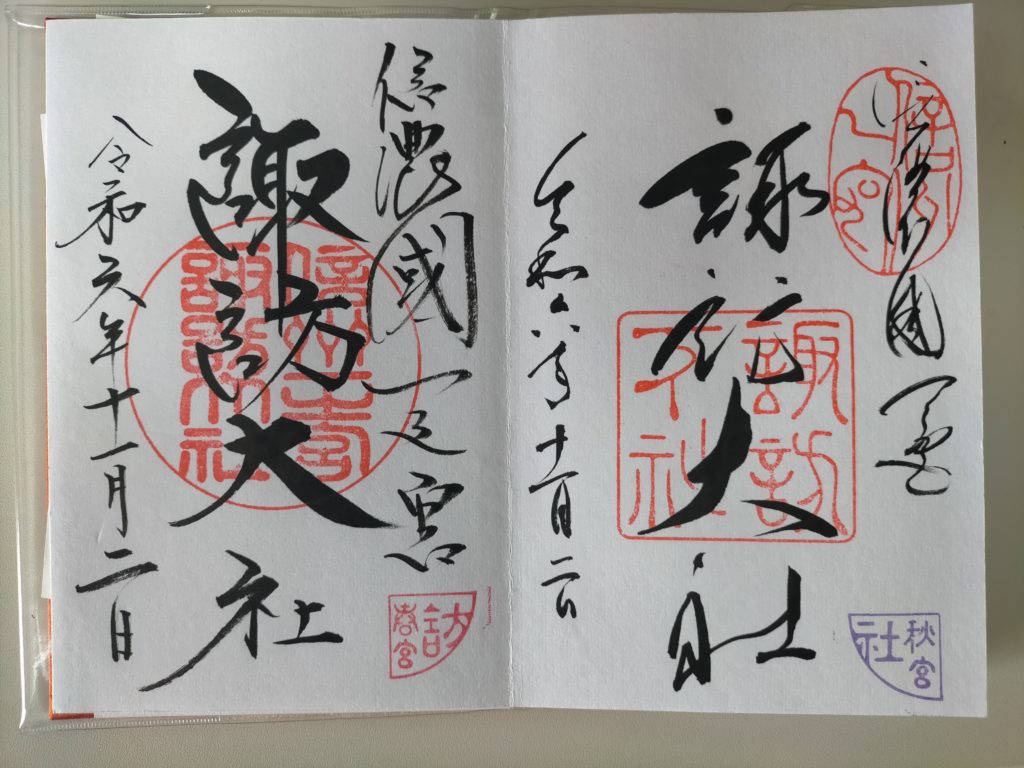 信濃國一之宮
諏訪大社
令和六年十一月二日
諏訪
大社
秋宮
社
信濃國一之宮
諏訪大社
令和六年十一月二日
訪
春宮